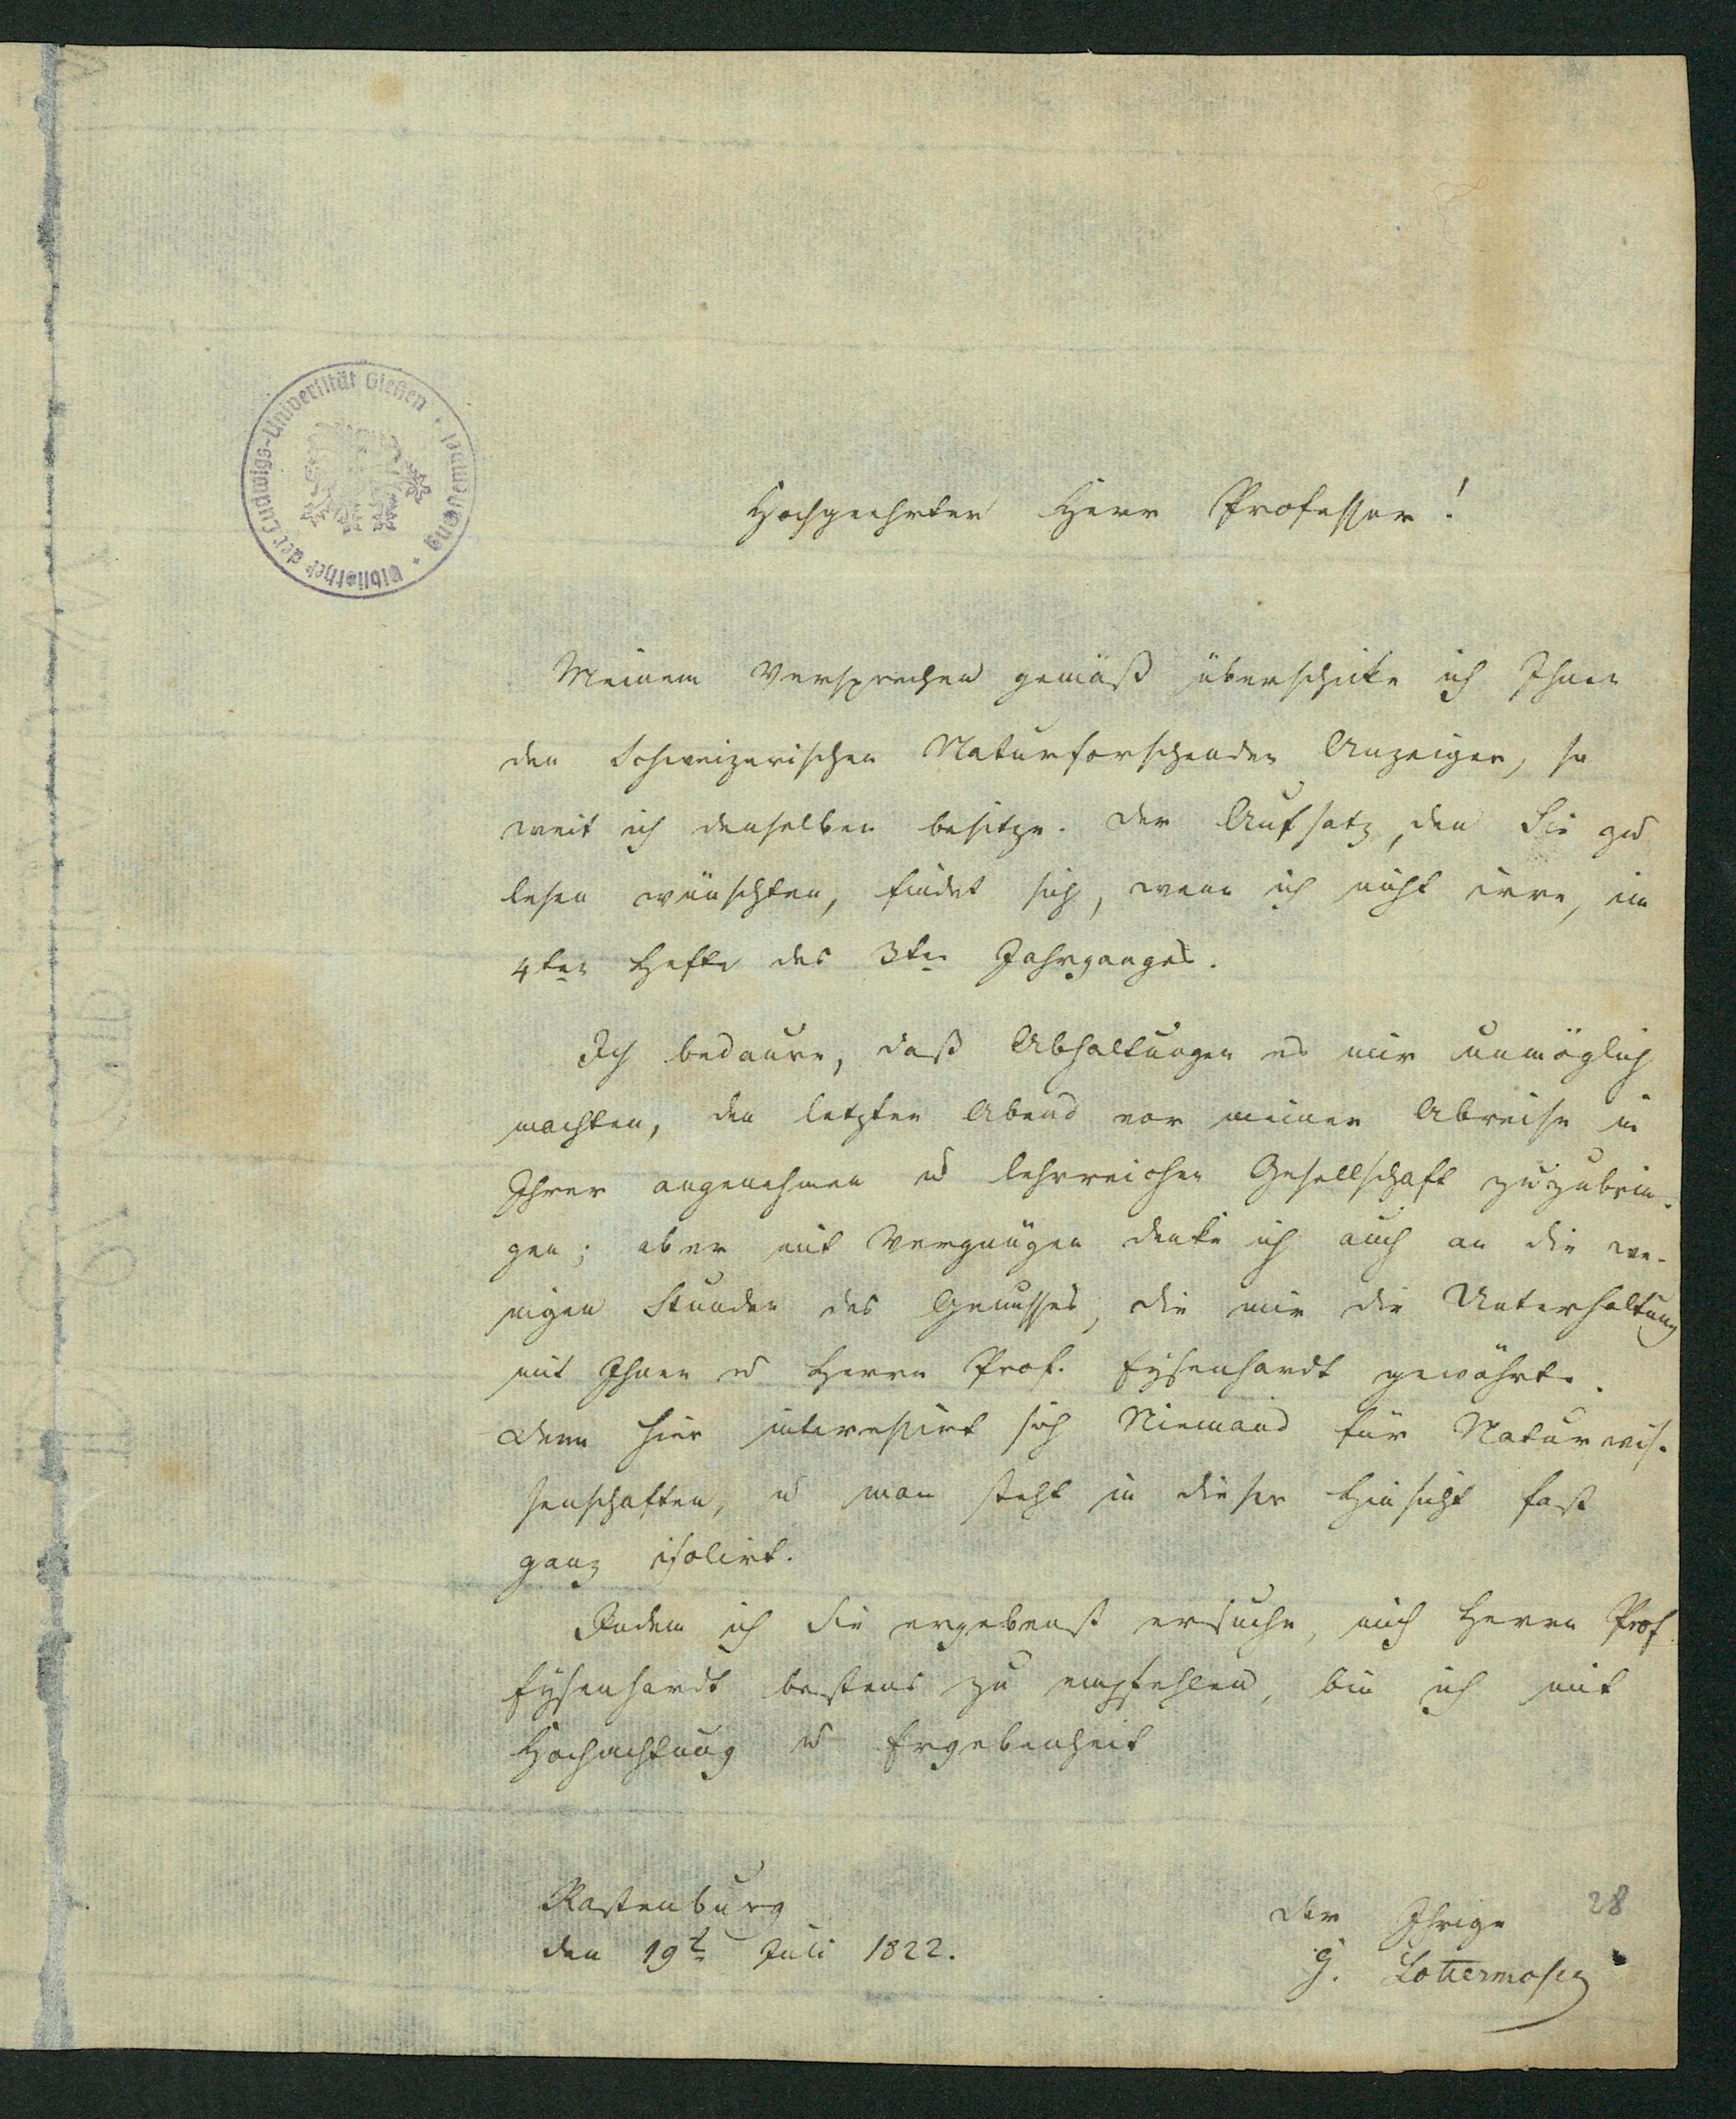 Bibliothek der Ludwigs-Universität Gießen
Hochgeehrter Herr Professor!
Meinem Versprechen gemäß überschicke ich Ihnen
den Schweizerischen Naturforschenden Anzeiger, so
weit ich denselben besitze. Der Aufsatz, den Sie zu
lesen wünschten, findet sich, wenn ich nicht irre, im
4ten Hefte des 3ten Jahrganges.
Ich bedaure, daß Abhaltungen es mir unmöglich
machten, den letzten Abend vor meiner Abreise in
Ihrer angenehmen u lehrreichen Gesellschaft zuzubrin-
gen; aber mit Vergnügen denke ich auch an die we-
nigen Stunden des Genusses, die mir die Unterhaltung
mit Ihnen u Herrn Prof. Eysenhardt gewährte.
Denn hier interessirt sich Niemand für Naturwis-
senschaften, u man steht in dieser Hinsicht fast
ganz isolirt.
Indem ich Sie ergebenst ersuche, mich Herrn Prof.
Eysenhardt bestens zu empfehlen, bin ich mit
Hochachtung u Ergebenheit
Rastenburg
den 19t Juli 1822.
der Ihrige
G. Lottermoser
28